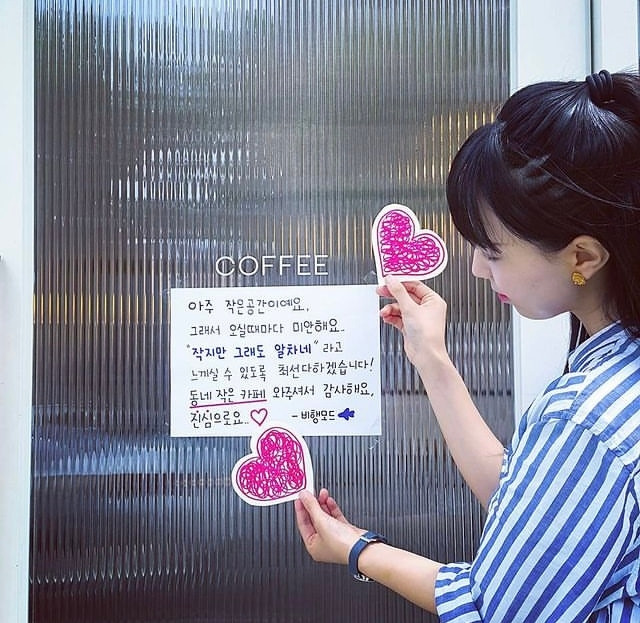 COFFEE
아주 작은공간이예요,
그래서 오실때마다 미안해요..
"작지만 그래도 알차네" 라고
느끼실 수 있도록 최선다하겠습니다!
동네 작은 카페 와주셔서 감사해요,
진심으로요.. ♡ - 비행모드